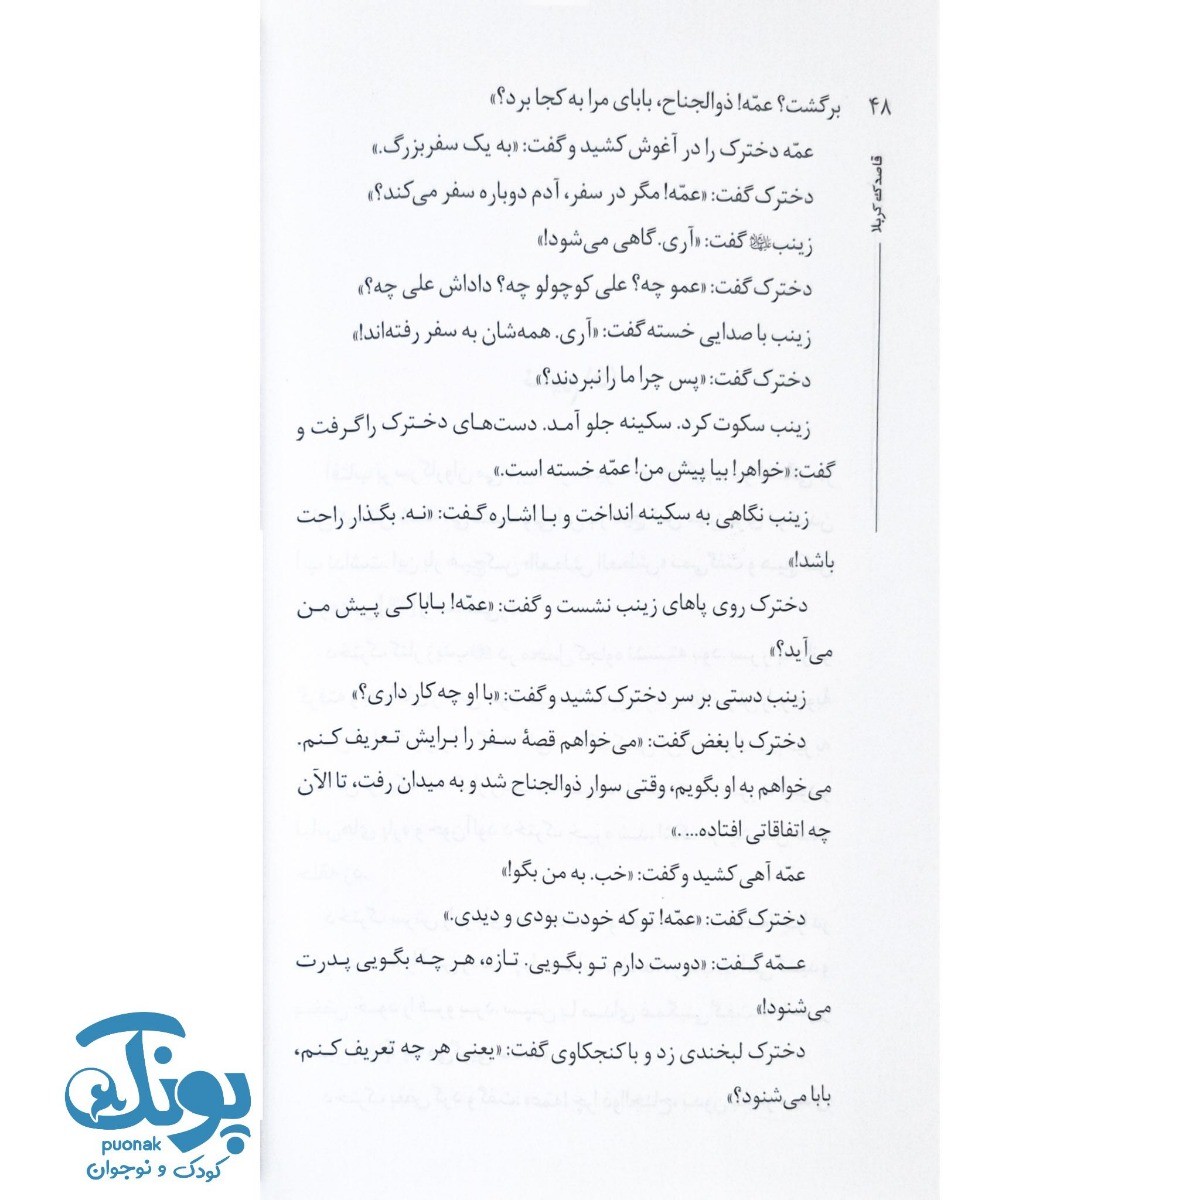 ۴۸
قاصدک کربلا
برگشت؟ عمّه! ذوالجناح، بابای مرا به کجا برد؟»
عمّه دخترک را در آغوش کشید و گفت: «به یک سفر بزرگ.»
دخترک گفت: «عمّه! مگر در سفر، آدم دوباره سفر می‌کند؟»
زینب گفت: «آری. گاهی می‌شود!»
دخترک گفت: «عمو چه؟ علی کوچولو چه؟ داداش علی چه؟»
زینب با صدایی خسته گفت: «آری. همه‌شان به سفر رفته‌اند!»
دخترک گفت: «پس چرا ما را نبردند؟»
زینب سکوت کرد. سکینه جلو آمد. دست‌های دخترک را گرفت و
گفت: «خواهر! بیا پیش من! عمّه خسته است.»
زینب نگاهی به سکینه انداخت و با اشاره گفت: «نه. بگذار راحت
باشد!»
دخترک روی پاهای زینب نشست و گفت: «عمّه! بابا کی پیش من
می‌آید؟»
زینب دستی بر سر دخترک کشید و گفت: «با او چه کار داری؟»
دخترک با بغض گفت: «می‌خواهم قصهٔ سفر را برایش تعریف کنم.
می‌خواهم به او بگویم، وقتی سوار ذوالجناح شد و به میدان رفت، تا الآن
چه اتفاقاتی افتاده....»
عمّه آهی کشید و گفت: «خب. به من بگو!»
دخترک گفت: «عمّه! تو که خودت بودی و دیدی.»
عمّه گفت: «دوست دارم تو بگویی. تازه، هر چه بگویی پدرت
می‌شنود!»
دخترک لبخندی زد و با کنجکاوی گفت: «یعنی هر چه تعریف کنم،
بابا می‌شنود؟»
پونک
puonak
کودک و نوجوان